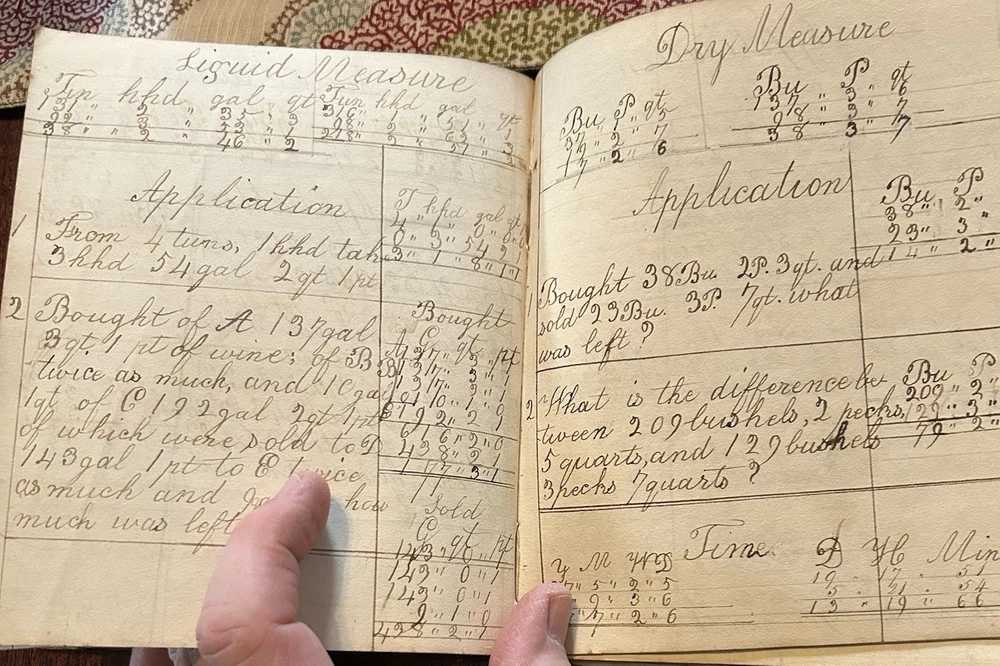 Liquid Measure
Tun hhd gal qt Tun hhd gal qt
38 " 2 " 46 " 2
Application
T hhd gal qt
4 " 1 " 0 " 0 " 0
0 " 3 " 54 " 2
3 " 1 " 8 " 1 " 1
1 From 4 tuns, 1 hhd take
3 hhd 54 gal 2 qt 1 pt
2 Bought of A 137 gal
3 qt 1 pt of wine; of B
twice as much, and 10 gal
1 qt of C 192 gal 2 qt 1 pt
of which were sold to D
143 gal 1 pt to E twice
as much and how
much was left
Bought
G " qt " pt
A 137 " 3 " 1
B 137 " 3 " 1
137 " 3 " 1
10 " 1 " 0
C 192 " 2 "
616 " 2 " 0
438 " 2 " 1
177 " 3 " 1
Sold
G qt pt
143 " 0 " 1
143 " 0 " 1
143 " 0 " 1
9 " 1 " 0
438 " 2 " 1
Dry Measure
Bu P qt
37 " 2 " 5
19 " 2 " 7
17 " 2 " 6
Bu P qt
137 " 3 " 6
98 " 3 " 7
38 " 3 " 7
Application
Bu P
38 " 2 "
23 " 3 "
14 " 2 "
1 Bought 38 Bu. 2P. 3 qt. and
sold 23 Bu. 3P 7 qt. what
was left ?
2 What is the difference be
tween 209 bushels, 2 pecks,
5 quarts, and 129 bushels
3 pecks 7 quarts ?
Bu P
209 " 2 "
129 " 3 "
79 " 2 "
Time
Y M W D
" 5 " 2 " 5
" 9 " 3 " 6
" 7 " 2 " 6
D H Min
19 " 17 " 54
5 " 21 " 54
13 " 19 "